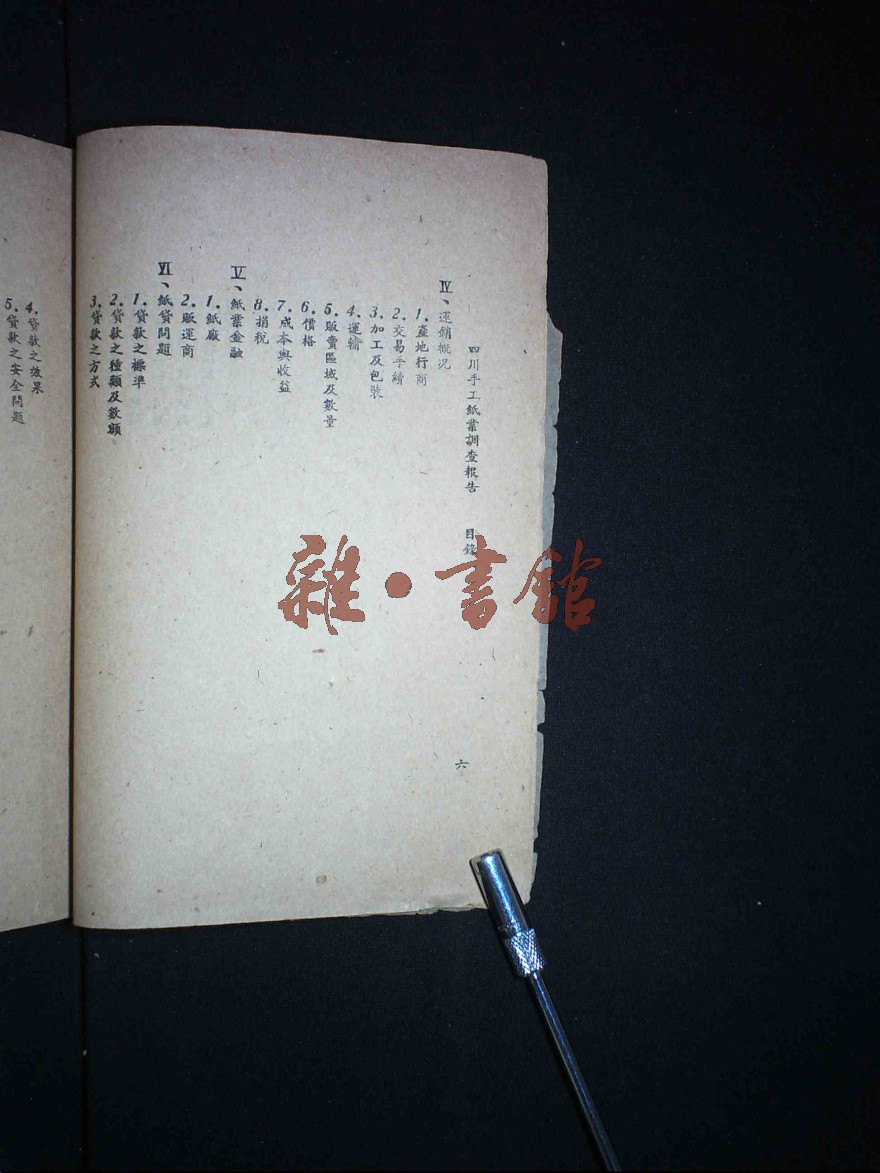 四川手工紙業調查報告 目錄 六
Ⅳ、運銷概況
1.產地行商
2.交易手續
3.加工及包裝
4.運輸
5.販賣區域及數量
6.價格
7.成本與收益
8.捐稅
Ⅴ、紙業金融
1.紙廠
2.販運商
Ⅵ、紙貸問題
1.貸款之標準
2.貸款之種類及數額
3.貸款之方式
4.貸款之效果
5.貸款之安全問題
雜·書館